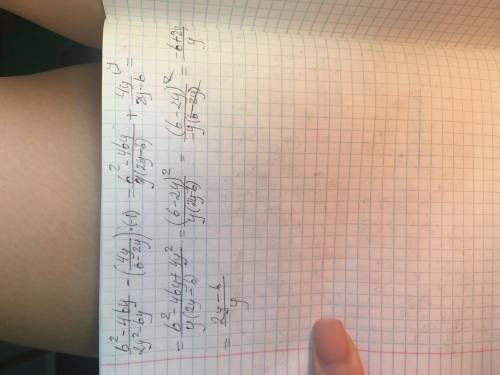 (b² - 4by)/(2y² - by) - (4y/(b - 2y)) · (-1) = (b² - 4by)/(y(2y - b)) + 4y^y/(2y - b) =
= (b² - 4by + 4y²)/(y(2y - b)) = (b - 2y)²/(y(2y - b)) = (b - 2y)²/(-y(b - 2y)) = (-b + 2y)/y
= (2y - b)/y